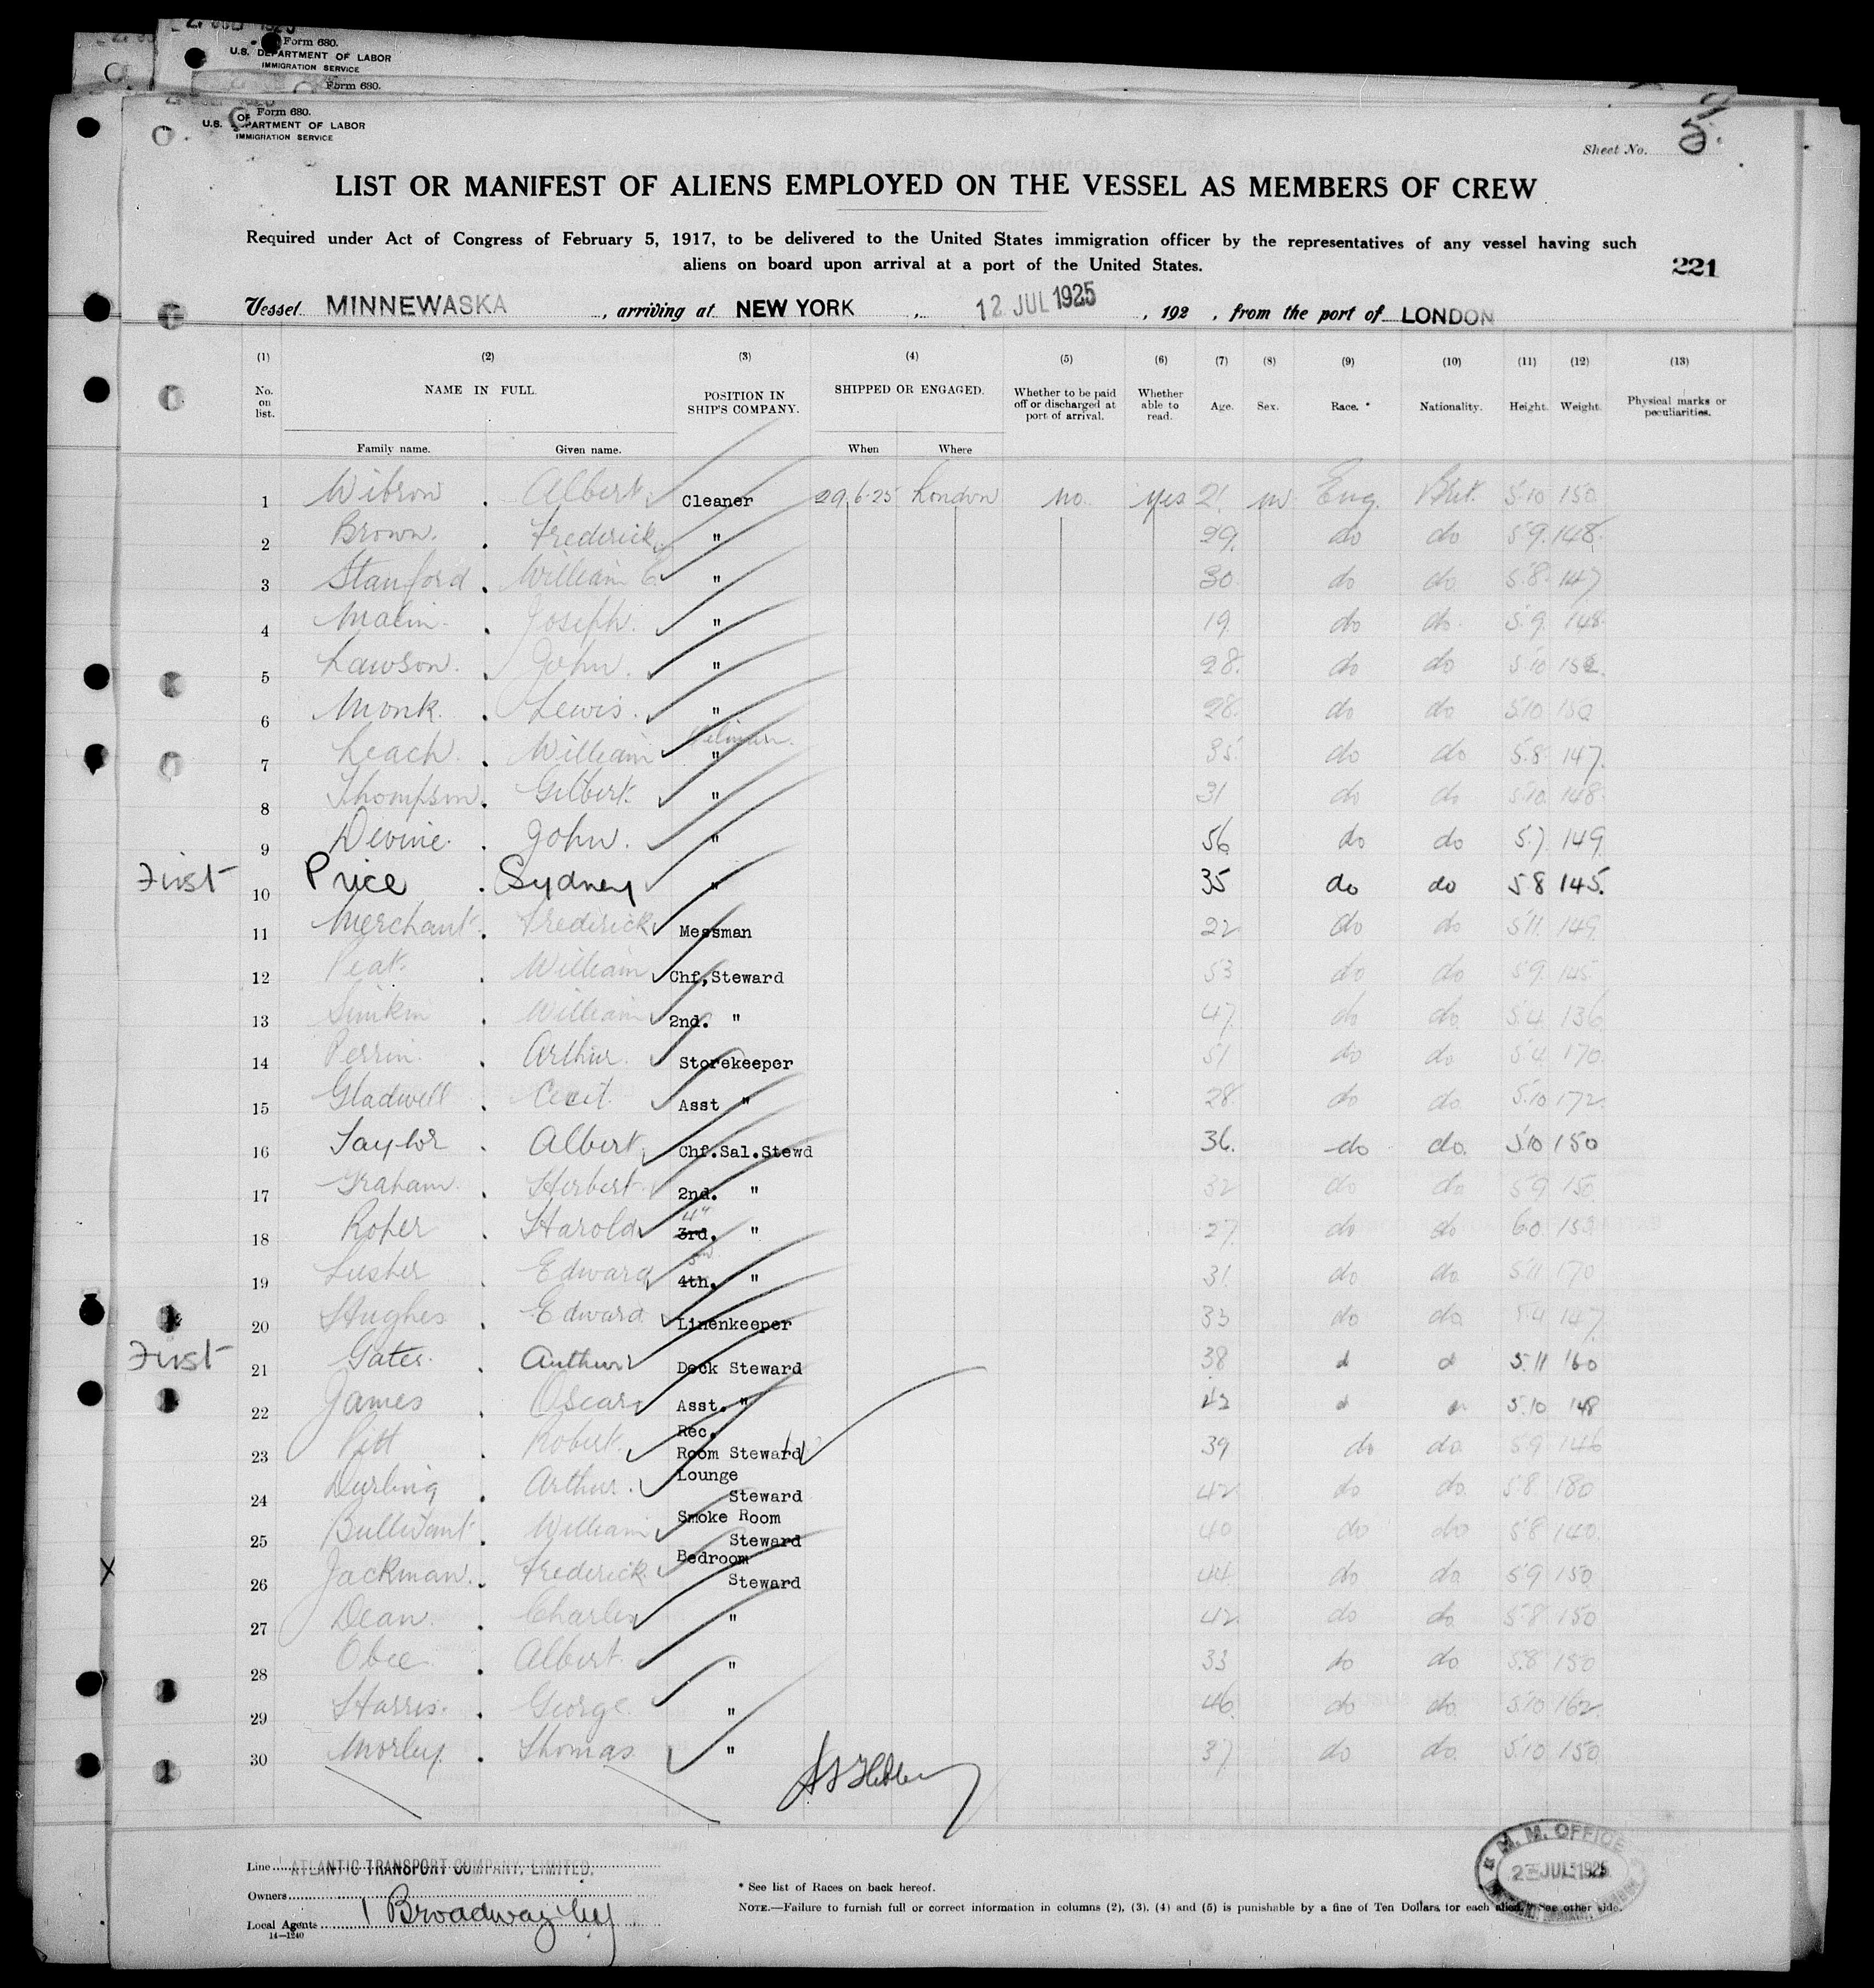 Form 680.
U.S. DEPARTMENT OF LABOR
IMMIGRATION SERVICE
Form 680.
Form 680.
U.S. DEPARTMENT OF LABOR
IMMIGRATION SERVICE
Sheet No. 5.
LIST OR MANIFEST OF ALIENS EMPLOYED ON THE VESSEL AS MEMBERS OF CREW
Required under Act of Congress of February 5, 1917, to be delivered to the United States immigration officer by the representatives of any vessel having such
aliens on board upon arrival at a port of the United States.
221
Vessel MINNEWASKA, arriving at NEW YORK, 12 JUL 1925, 192 , from the port of LONDON
(1) (2) (3) (4) (5) (6) (7) (8) (9) (10) (11) (12) (13)
No. on list. NAME IN FULL. POSITION IN SHIP'S COMPANY. SHIPPED OR ENGAGED. Whether to be paid off or discharged at port of arrival. Whether able to read. Age. Sex. Race. * Nationality. Height. Weight. Physical marks or peculiarities.
Family name. Given name. When Where
1 Wibrow . Albert Cleaner 29.6.25 London no. yes 21 m Eng. Brit. 5.10 150
2 Brown. . Frederick " 29. do do 5.9. 148.
3 Stanford . William C. " 30. do do 5.8. 147
4 Malin . Joseph. " 19. do do. 5.9. 148.
5 Lawson. . John. " 28. do do 5.10 152.
6 Monk. . Lewis. " 28. do do 5.10 150
7 Leach. . William " 35. do do 5.8. 147.
8 Thompson . Gilbert. " 31 do do 5.10. 148.
9 Devine. . John. " 56 do do 5.7. 149
First 10 Price . Sydney " 35 do do 5 8 145.
11 Merchant . Frederick Messman 22 do do 5.11. 149.
12 Peat. . William Chf,Steward 53 do do 5.9. 145.
13 Simkin . William 2nd. " 47. do do. 5.4. 136
14 Perrin. . Arthur. Storekeeper 51 do do. 5.4. 170.
15 Gladwell . Cecil. Asst " 28. do do 5.10 172.
16 Taylor . Albert Chf.Sal.Stewd 36. do do. 5.10 150
17 Graham. . Herbert 2nd. " 32 do do 5.9 150
18 Roper . Harold 3rd. 4th " 27. do do 6.0 153
19 Lusher . Edward 4th. 3rd " 31. do do 5.11 170
20 Hughes . Edward Linenkeeper 33 do do 5.4 147.
First 21 Gates. . Arthur Deck Steward 38 d d 5.11 160
22 James . Oscar Asst. " 42 5.10 148
Rec.
23 Pitt . Robert. Room Steward 39 do do 5.9 146
Lounge
24 Durling . Arthur. Steward 42 do do 5.8 180
Smoke Room
25 Bullivant . William Steward 40 do do 5.8 140.
Bedroom
X 26 Jackman. . Frederick. Steward 44 do do 5.9 150
27 Dean. . Charles " 42. do do 5.8 150
28 Obee . Albert. " 33 do do 5.8 150
29 Harris. . George. " 46. do do. 5.10 162.
30 Morley. . Thomas " 37. do do. 5.10 150
Line ATLANTIC TRANSPORT COMPANY, LIMITED.
Owners
Local Agents 1 Broadway
14—1240
* See list of Races on back hereof.
NOTE.—Failure to furnish full or correct information in columns (2), (3), (4) and (5) is punishable by a fine of Ten Dollars for each alien. See other side.
M. M. OFFICE
2-JUL 1925